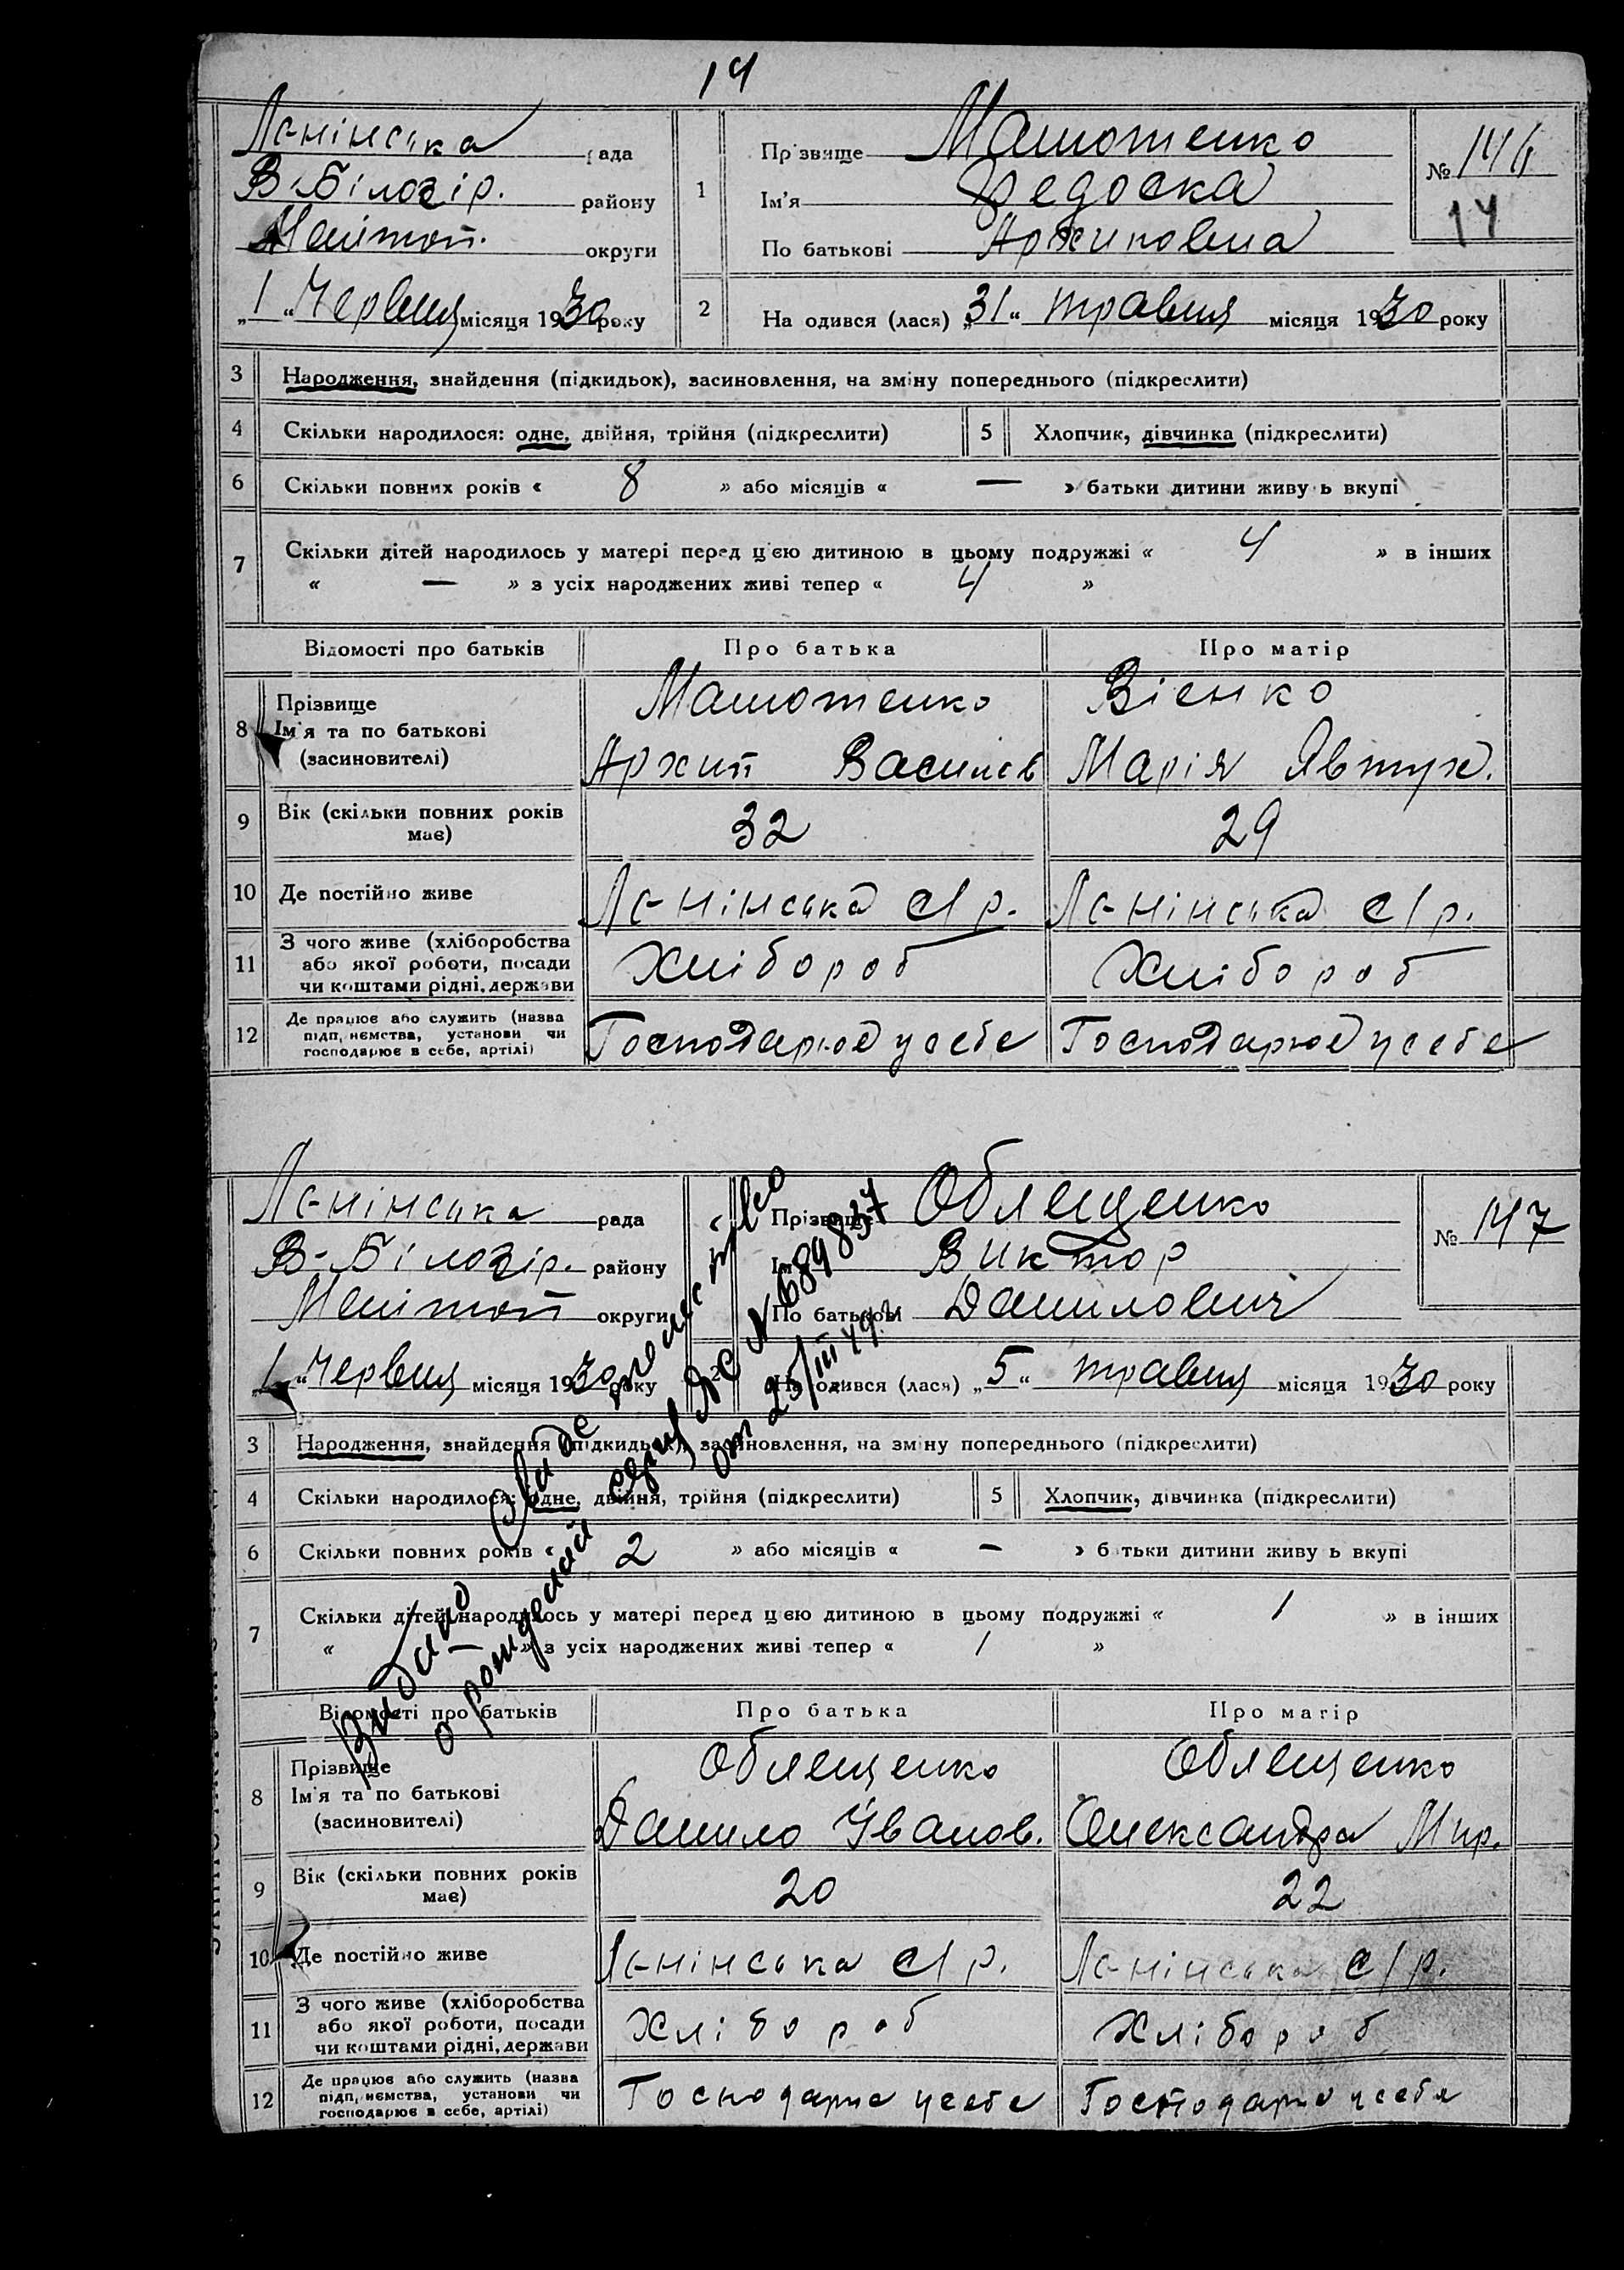 14
Ленінська рада
В-Білозір. району
Мелітоп. округи
„1“ Червня місяця 1930 року
1
Прізвище Малютенко
Ім'я Федоска
По батькові Архиповна
№ 146
14
2 На одився (лася) „31“ травня місяця 1930 року
3 Народження, знайдення (підкидьок), засиновлення, на зміну попереднього (підкреслити)
4 Скільки народилося: одне, двійня, трійня (підкреслити) 5 Хлопчик, дівчинка (підкреслити)
6 Скільки повних років « 8 » або місяців « — » батьки дитини живу ь вкупі
7 Скільки дітей народилось у матері перед цією дитиною в цьому подружжі « 4 » в інших
« — » з усіх народжених живі тепер « 4 »
Відомості про батьків Про батька Про матір
8 Прізвище Малютенко Вієнко
Ім'я та по батькові
(засиновителі) Архип Васильєв Марія Явтух.
9 Вік (скільки повних років
має) 32 29
10 Де постійно живе Ленінська с/р. Ленінська с/р.
11 З чого живе (хліборобства
або якої роботи, посади Хлібороб Хлібороб
чи коштами рідні, держави
12 Де працює або служить (назва
підп,иємства, установи чи Господарює у себе Господарює у себе
господарює в себе, артілі)
Ленінська рада
В-Білозір. району
Мелітоп округи
„1“ Червня місяця 1930 року
Прізвище Облещенко
Ім'я Виктор
По батькові Данилович
№ 147
2 На одився (лася) „5“ травня місяця 1930 року
3 Народження, знайдення (підкидьок), засиновлення, на зміну попереднього (підкреслити)
4 Скільки народилося: одне, двійня, трійня (підкреслити) 5 Хлопчик, дівчинка (підкреслити)
6 Скільки повних років « 2 » або місяців « — » б тьки дитини живу ь вкупі
7 Скільки дітей народилось у матері перед цією дитиною в цьому подружжі « 1 » в інших
« — » з усіх народжених живі тепер « 1 »
Видано
№ 689837
от 25/III 49
Відомості про батьків Про батька Про матір
8 Прізвище Облещенко Облещенко
Ім'я та по батькові
(засиновителі) Данило Іванов. Олександра Мир.
9 Вік (скільки повних років
має) 20 22
10 Де постійно живе Ленінська с/р. Ленінська с/р.
11 З чого живе (хліборобства
або якої роботи, посади Хлібороб Хлібороб
чи коштами рідні, держави
12 Де працює або служить (назва
підп,иємства, установи чи Господарює у себе Господарює у себе
господарює в себе, артілі)